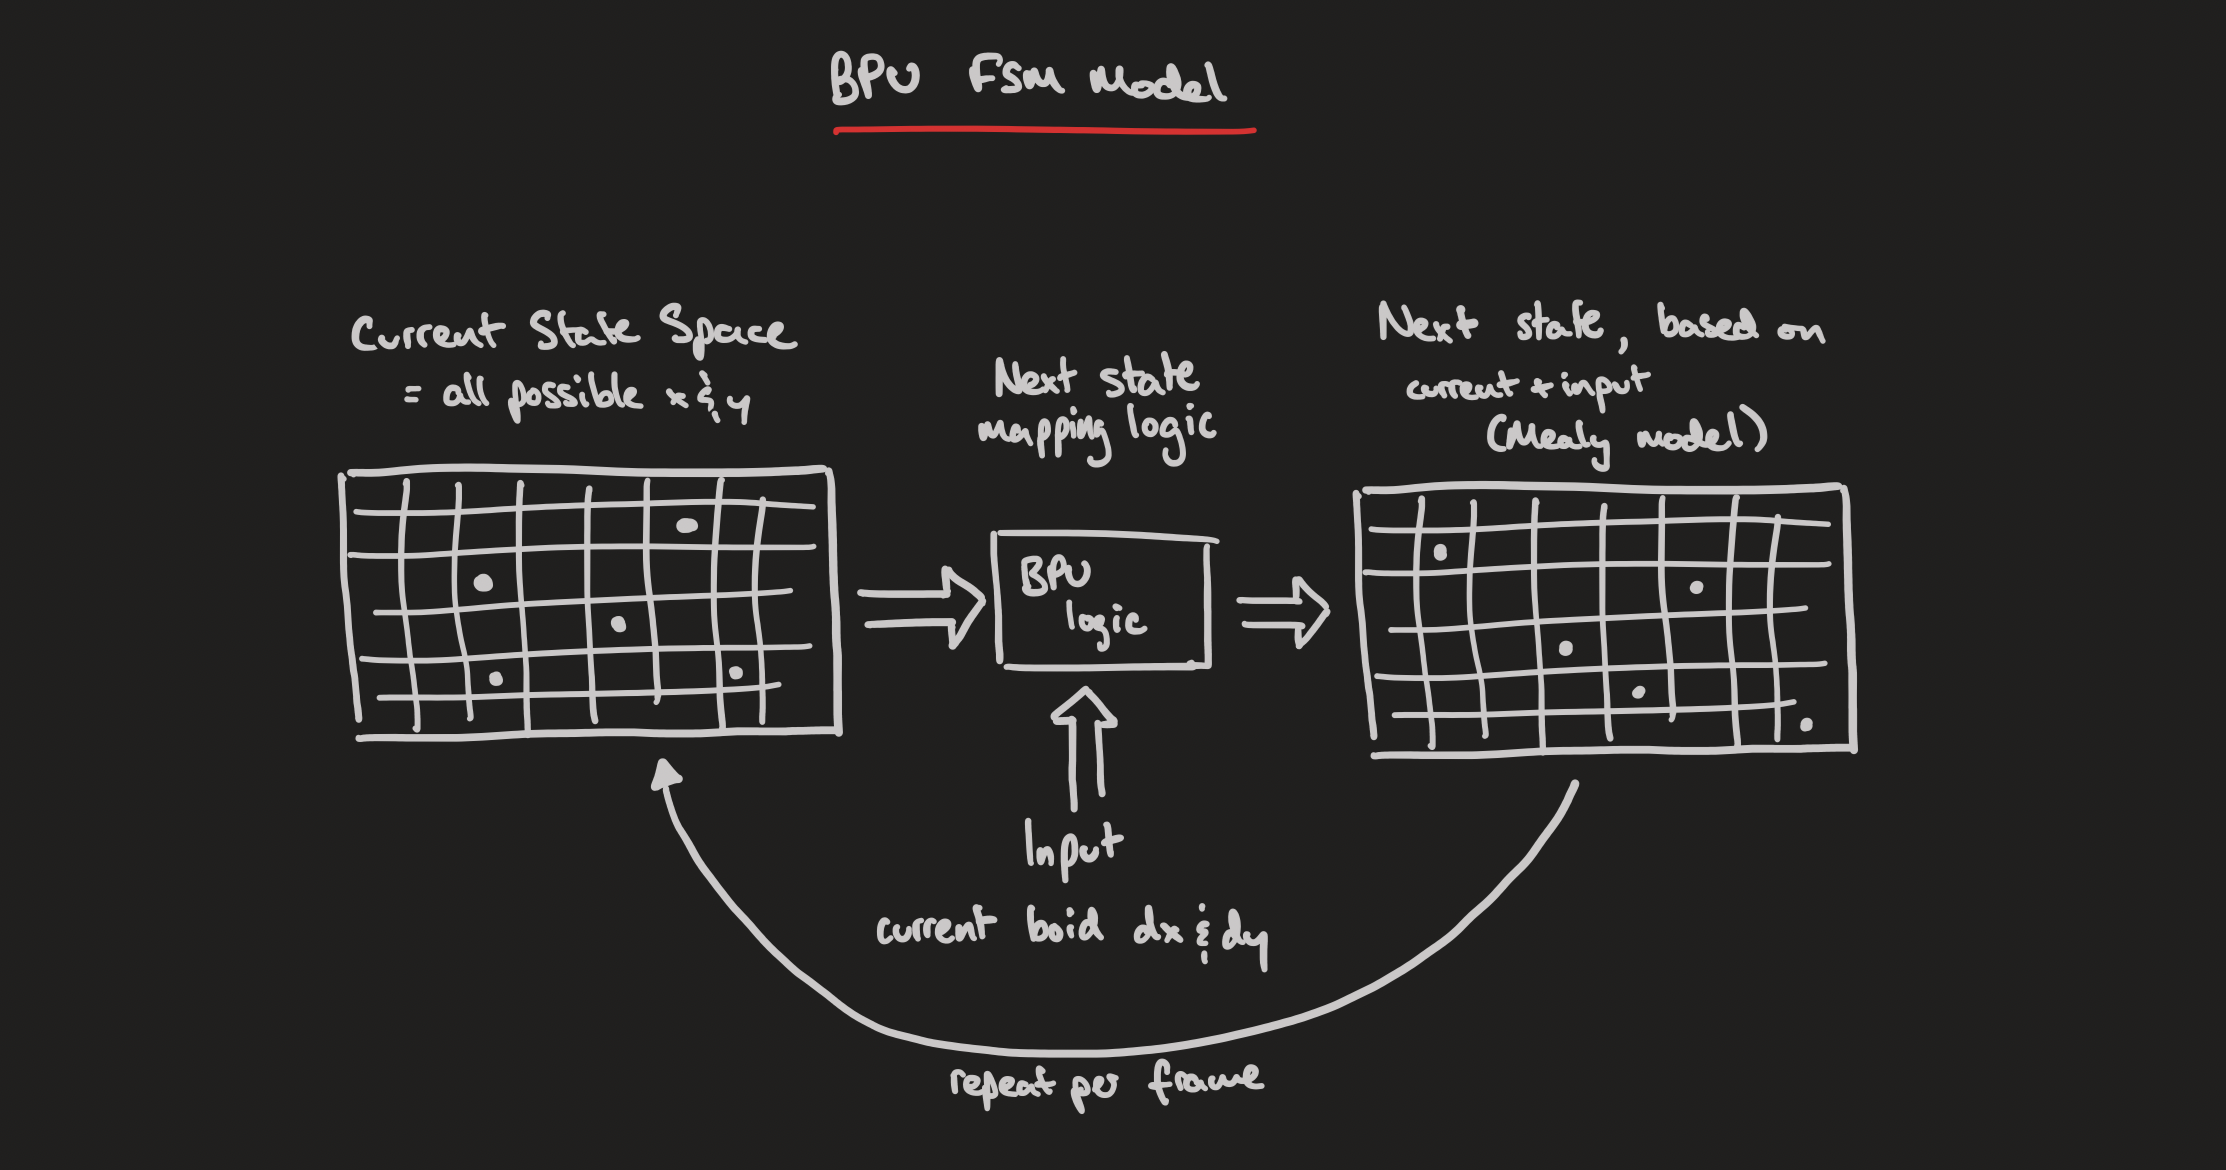 BPU FSM Model
Current State Space
= all possible x & y
Next state
mapping logic
Next state, based on
current + input
(Mealy model)
BPU
logic
Input
current boid dx & dy
repeat per frame